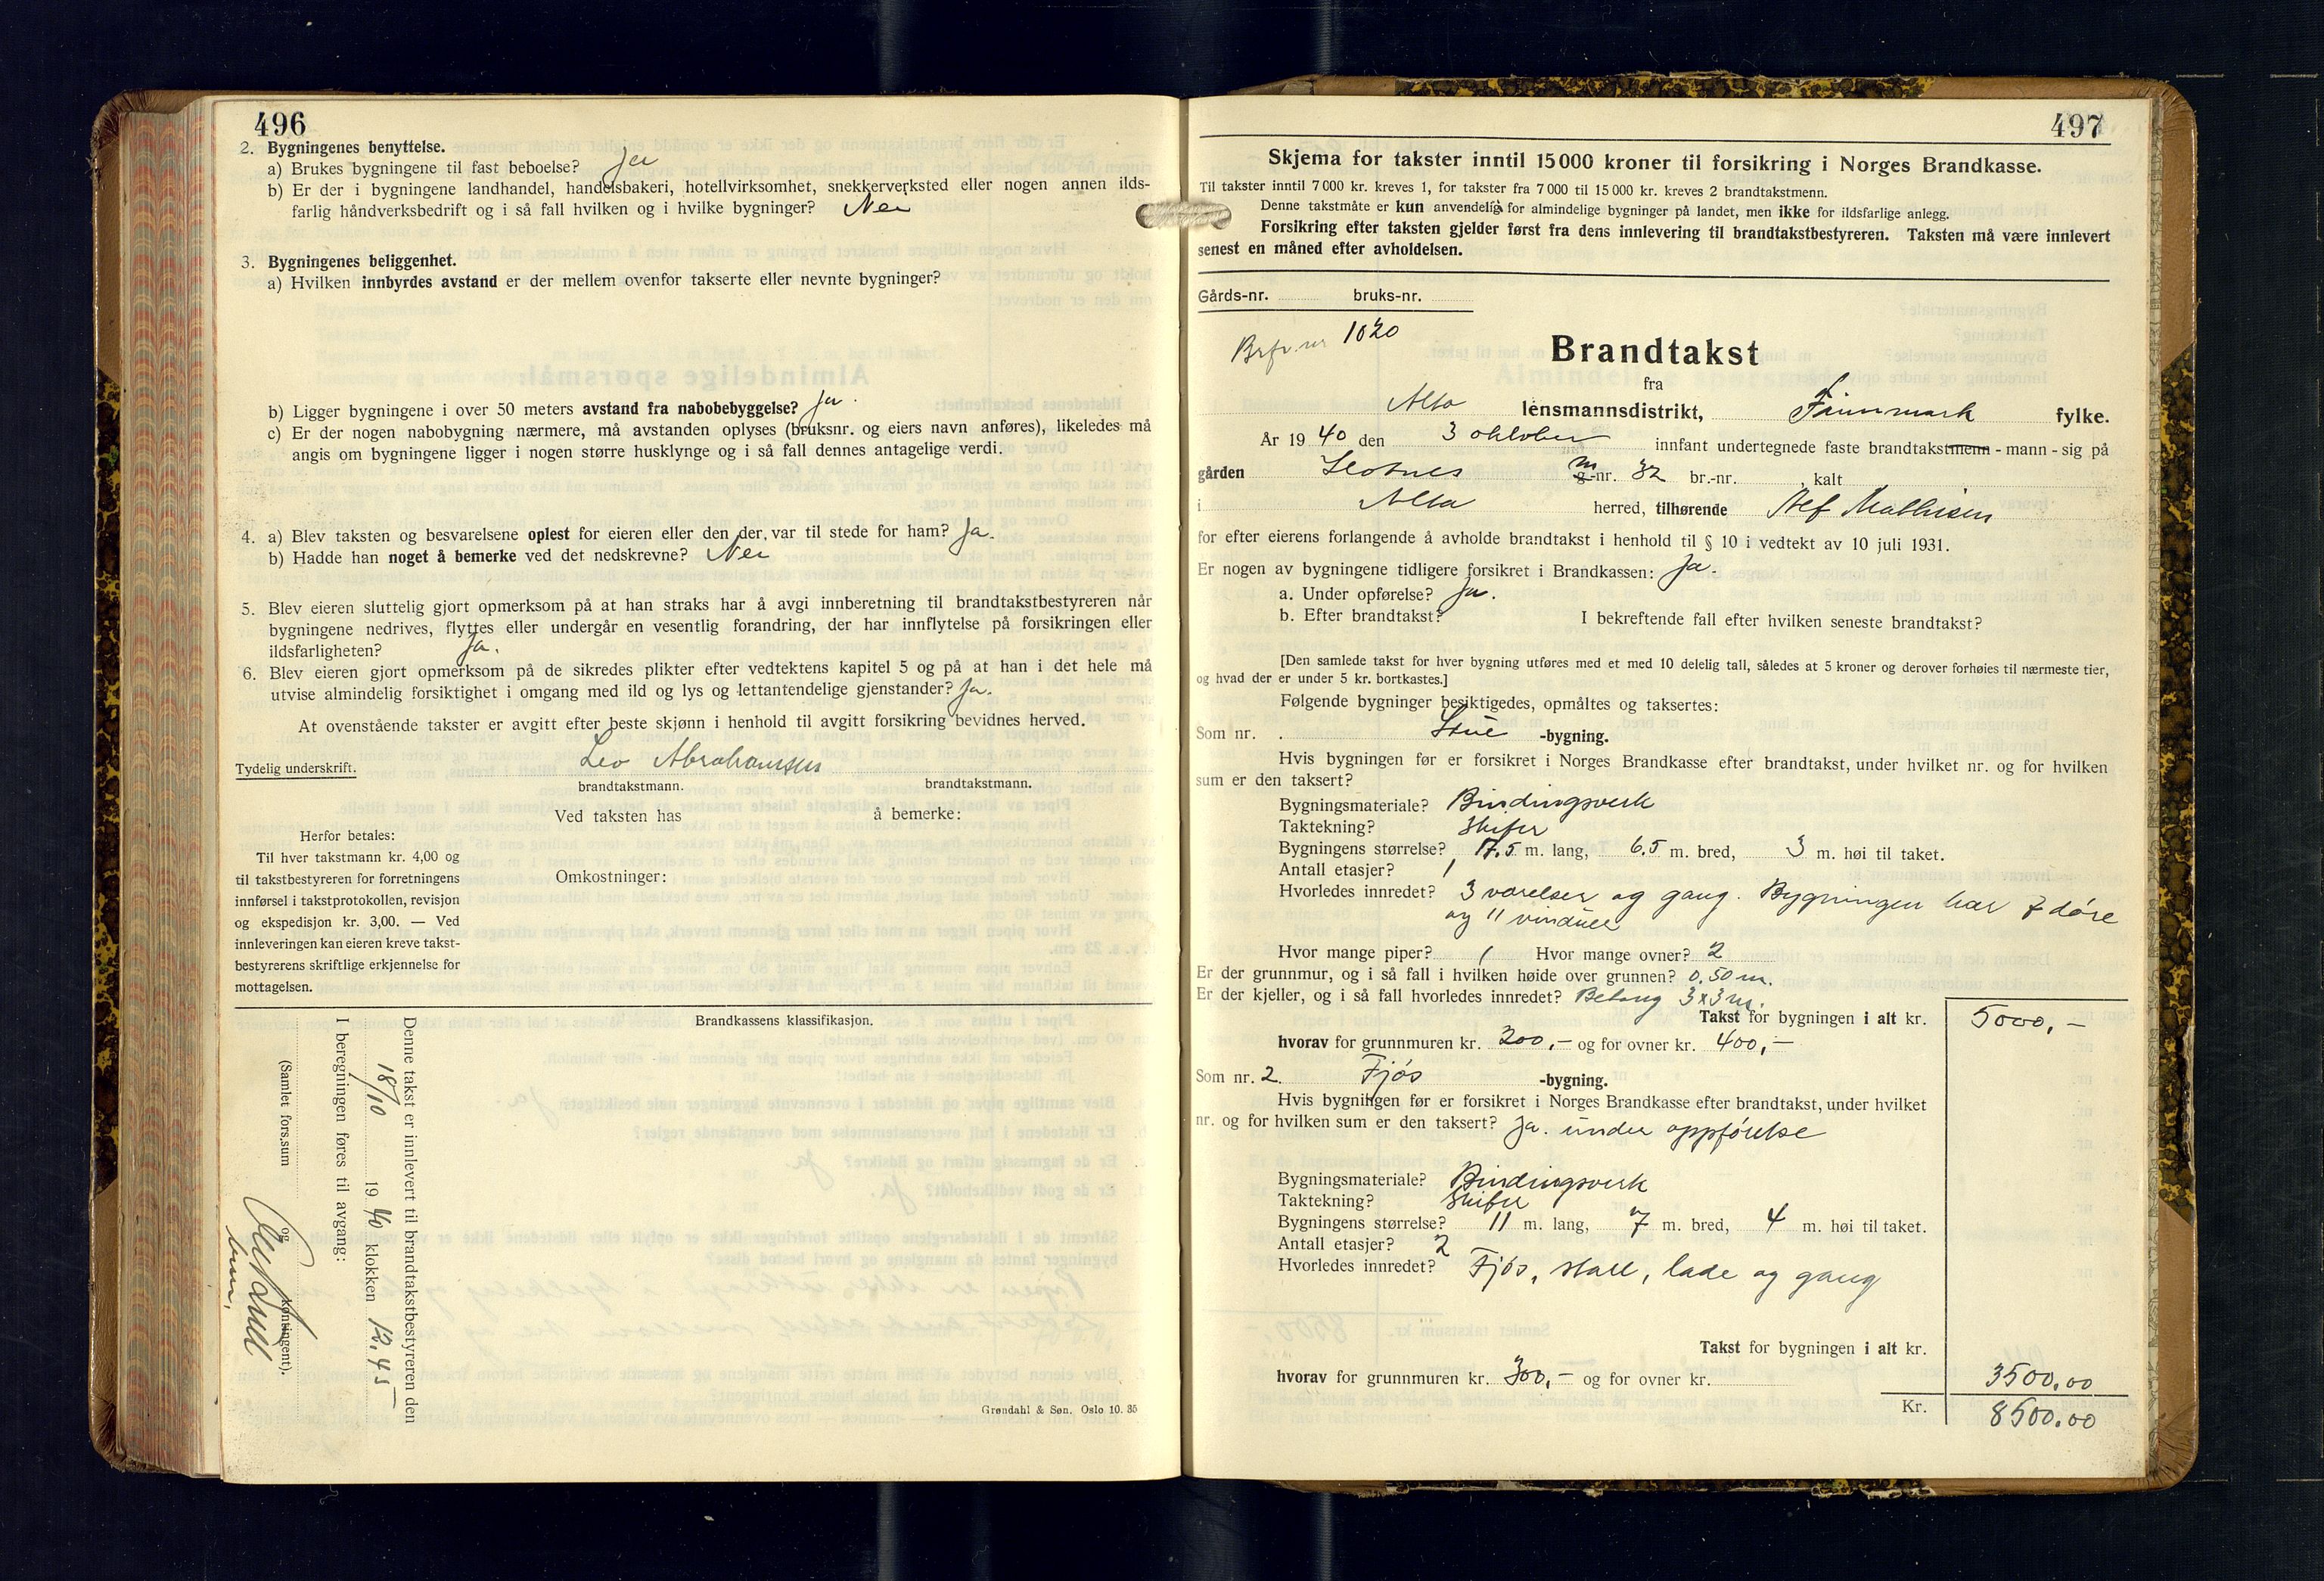 496
2. Bygningenes benyttelse.
a) Brukes bygningene til fast beboelse? Ja
b) Er der i bygningene landhandel, handelsbakeri, hotellvirksomhet, snekkerverksted eller nogen annen ilds-
farlig håndverksbedrift og i så fall hvilken og i hvilke bygninger? Nei
3. Bygningenes beliggenhet.
a) Hvilken innbyrdes avstand er der mellem ovenfor takserte eller nevnte bygninger?
b) Ligger bygningene i over 50 meters avstand fra nabobebyggelse? Ja.
c) Er der nogen nabobygning nærmere, må avstanden oplyses (bruksnr. og eiers navn anføres), likeledes må
angis om bygningene ligger i nogen større husklynge og i så fall dennes antagelige verdi.
4. a) Blev taksten og besvarelsene oplest for eieren eller den der var til stede for ham? Ja.
b) Hadde han noget å bemerke ved det nedskrevne? Nei
5. Blev eieren sluttelig gjort opmerksom på at han straks har å avgi innberetning til brandtakstbestyreren når
bygningene nedrives, flyttes eller undergår en vesentlig forandring, der har innflytelse på forsikringen eller
ildsfarligheten? Ja.
6. Blev eieren gjort opmerksom på de sikredes plikter efter vedtektens kapitel 5 og på at han i det hele må
utvise almindelig forsiktighet i omgang med ild og lys og lettantendelige gjenstander? Ja.
At ovenstående takster er avgitt efter beste skjønn i henhold til avgitt forsikring bevidnes herved.
Tydelig underskrift. Leo Abrahamsen
brandtakstmann. brandtakstmann.
Ved taksten has å bemerke:
Herfor betales:
Til hver takstmann kr. 4,00 og
til takstbestyreren for forretningens
innførsel i takstprotokollen, revisjon
og ekspedisjon kr. 3,00. — Ved
innleveringen kan eieren kreve takst-
bestyrerens skriftlige erkjennelse for
mottagelsen.
Omkostninger:
Brandkassens klassifikasjon.
Denne takst er innlevert til brandtakstbestyreren den
18/10 1940 klokken 13.45
I beregningen føres til avgang:
(Samlet fors.sum og kontingent).
Grøndahl & Søn, Oslo 10. 35
497
Skjema for takster inntil 15000 kroner til forsikring i Norges Brandkasse.
Til takster inntil 7000 kr. kreves 1, for takster fra 7000 til 15000 kr. kreves 2 brandtakstmenn.
Denne takstmåte er kun anvendelig for almindelige bygninger på landet, men ikke for ildsfarlige anlegg.
Forsikring efter taksten gjelder først fra dens innlevering til brandtakstbestyreren. Taksten må være innlevert
senest en måned efter avholdelsen.
Gårds-nr. bruks-nr.
Brfr. nr 1020
Brandtakst
fra
Alta lensmannsdistrikt, Finnmark fylke.
År 1940 den 3 oktober innfant undertegnede faste brandtakstmenn - mann - sig på
gården m-nr. 32 br.-nr. , kalt
i Alta herred, tilhørende Alf Mathisen
for efter eierens forlangende å avholde brandtakst i henhold til § 10 i vedtekt av 10 juli 1931.
Er nogen av bygningene tidligere forsikret i Brandkassen: Ja.
a. Under opførelse? Ja.
b. Efter brandtakst? I bekreftende fall efter hvilken seneste brandtakst?
[Den samlede takst for hver bygning utføres med et med 10 delelig tall, således at 5 kroner og derover forhøies til nærmeste tier,
og hvad der er under 5 kr. bortkastes.]
Følgende bygninger besiktigedes, opmåltes og taksertes:
Som nr. . Stue -bygning.
Hvis bygningen før er forsikret i Norges Brandkasse efter brandtakst, under hvilket nr. og for hvilken
sum er den taksert?
Bygningsmateriale? Bindingsverk
Taktekning? Skifer
Bygningens størrelse? 17.5 m. lang, 6.5 m. bred, 3 m. høi til taket.
Antall etasjer? 1
Hvorledes innredet? 3 værelser og gang. Bygningen har 7 døre
og 11 vinduer
Hvor mange piper? 1 Hvor mange ovner? 2
Er der grunnmur, og i så fall i hvilken høide over grunnen? 0,50 m.
Er der kjeller, og i så fall hvorledes innredet? Betong 3x3 m.
Takst for bygningen i alt kr. 5000,—
hvorav for grunnmuren kr. 200,— og for ovner kr. 400,—
Som nr. 2. Fjøs -bygning.
Hvis bygningen før er forsikret i Norges Brandkasse efter brandtakst, under hvilket
nr. og for hvilken sum er den taksert? Ja. under oppførelse
Bygningsmateriale? Bindingsverk
Taktekning? Skifer
Bygningens størrelse? 11 m. lang, 7 m. bred, 4 m. høi til taket.
Antall etasjer? 2
Hvorledes innredet? Fjøs, stall, lade og gang
Takst for bygningen i alt kr.
hvorav for grunnmuren kr. 300,— og for ovner kr. 3500,00
Kr. 8500,00